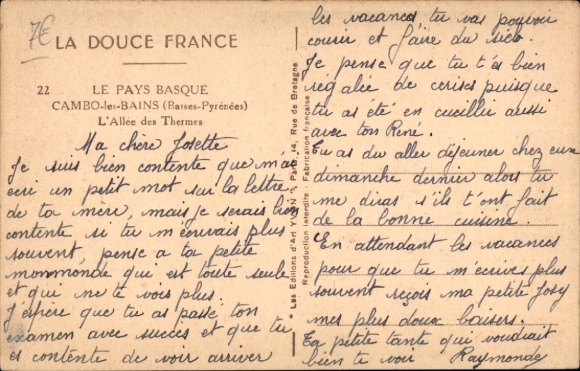 7€
LA DOUCE FRANCE
22 LE PAYS BASQUE
CAMBO-les-BAINS (Basses-Pyrénées)
L'Allée des Thermes
Ma chère Josette
Je suis bien contente que m'aie
écri un petit mot sur la lettre
de ta mère, mais je serais bien
contente si tu m'écrivais plus
souvent, pense a ta petite
monmonde qui est toute seule
et qui ne te vois plus.
J'éspère que tu as passé ton
éxamen avec succès et que tu
es contente de voir arriver
Les Editions d'Art YVON, Paris, 14, Rue de Bretagne
Reproduction interdite - Fabrication française
les vacances, tu vas pouvoir
courir et faire du vélo.
Je pense que tu t'és bien
régalée de cerises puisque
tu as été en cueillir aussi
avec ton René.
Tu as du aller déjeuner chez eux
dimanche dernier alors tu
me diras s'ils t'ont fait
de la bonne cuisine.
En attendant les vacances
pour que tu m'ecrives plus
souvent reçois ma petite Josy
mes plus doux baisers.
Ta petite tante qui voudrait
bien te voir Raymonde